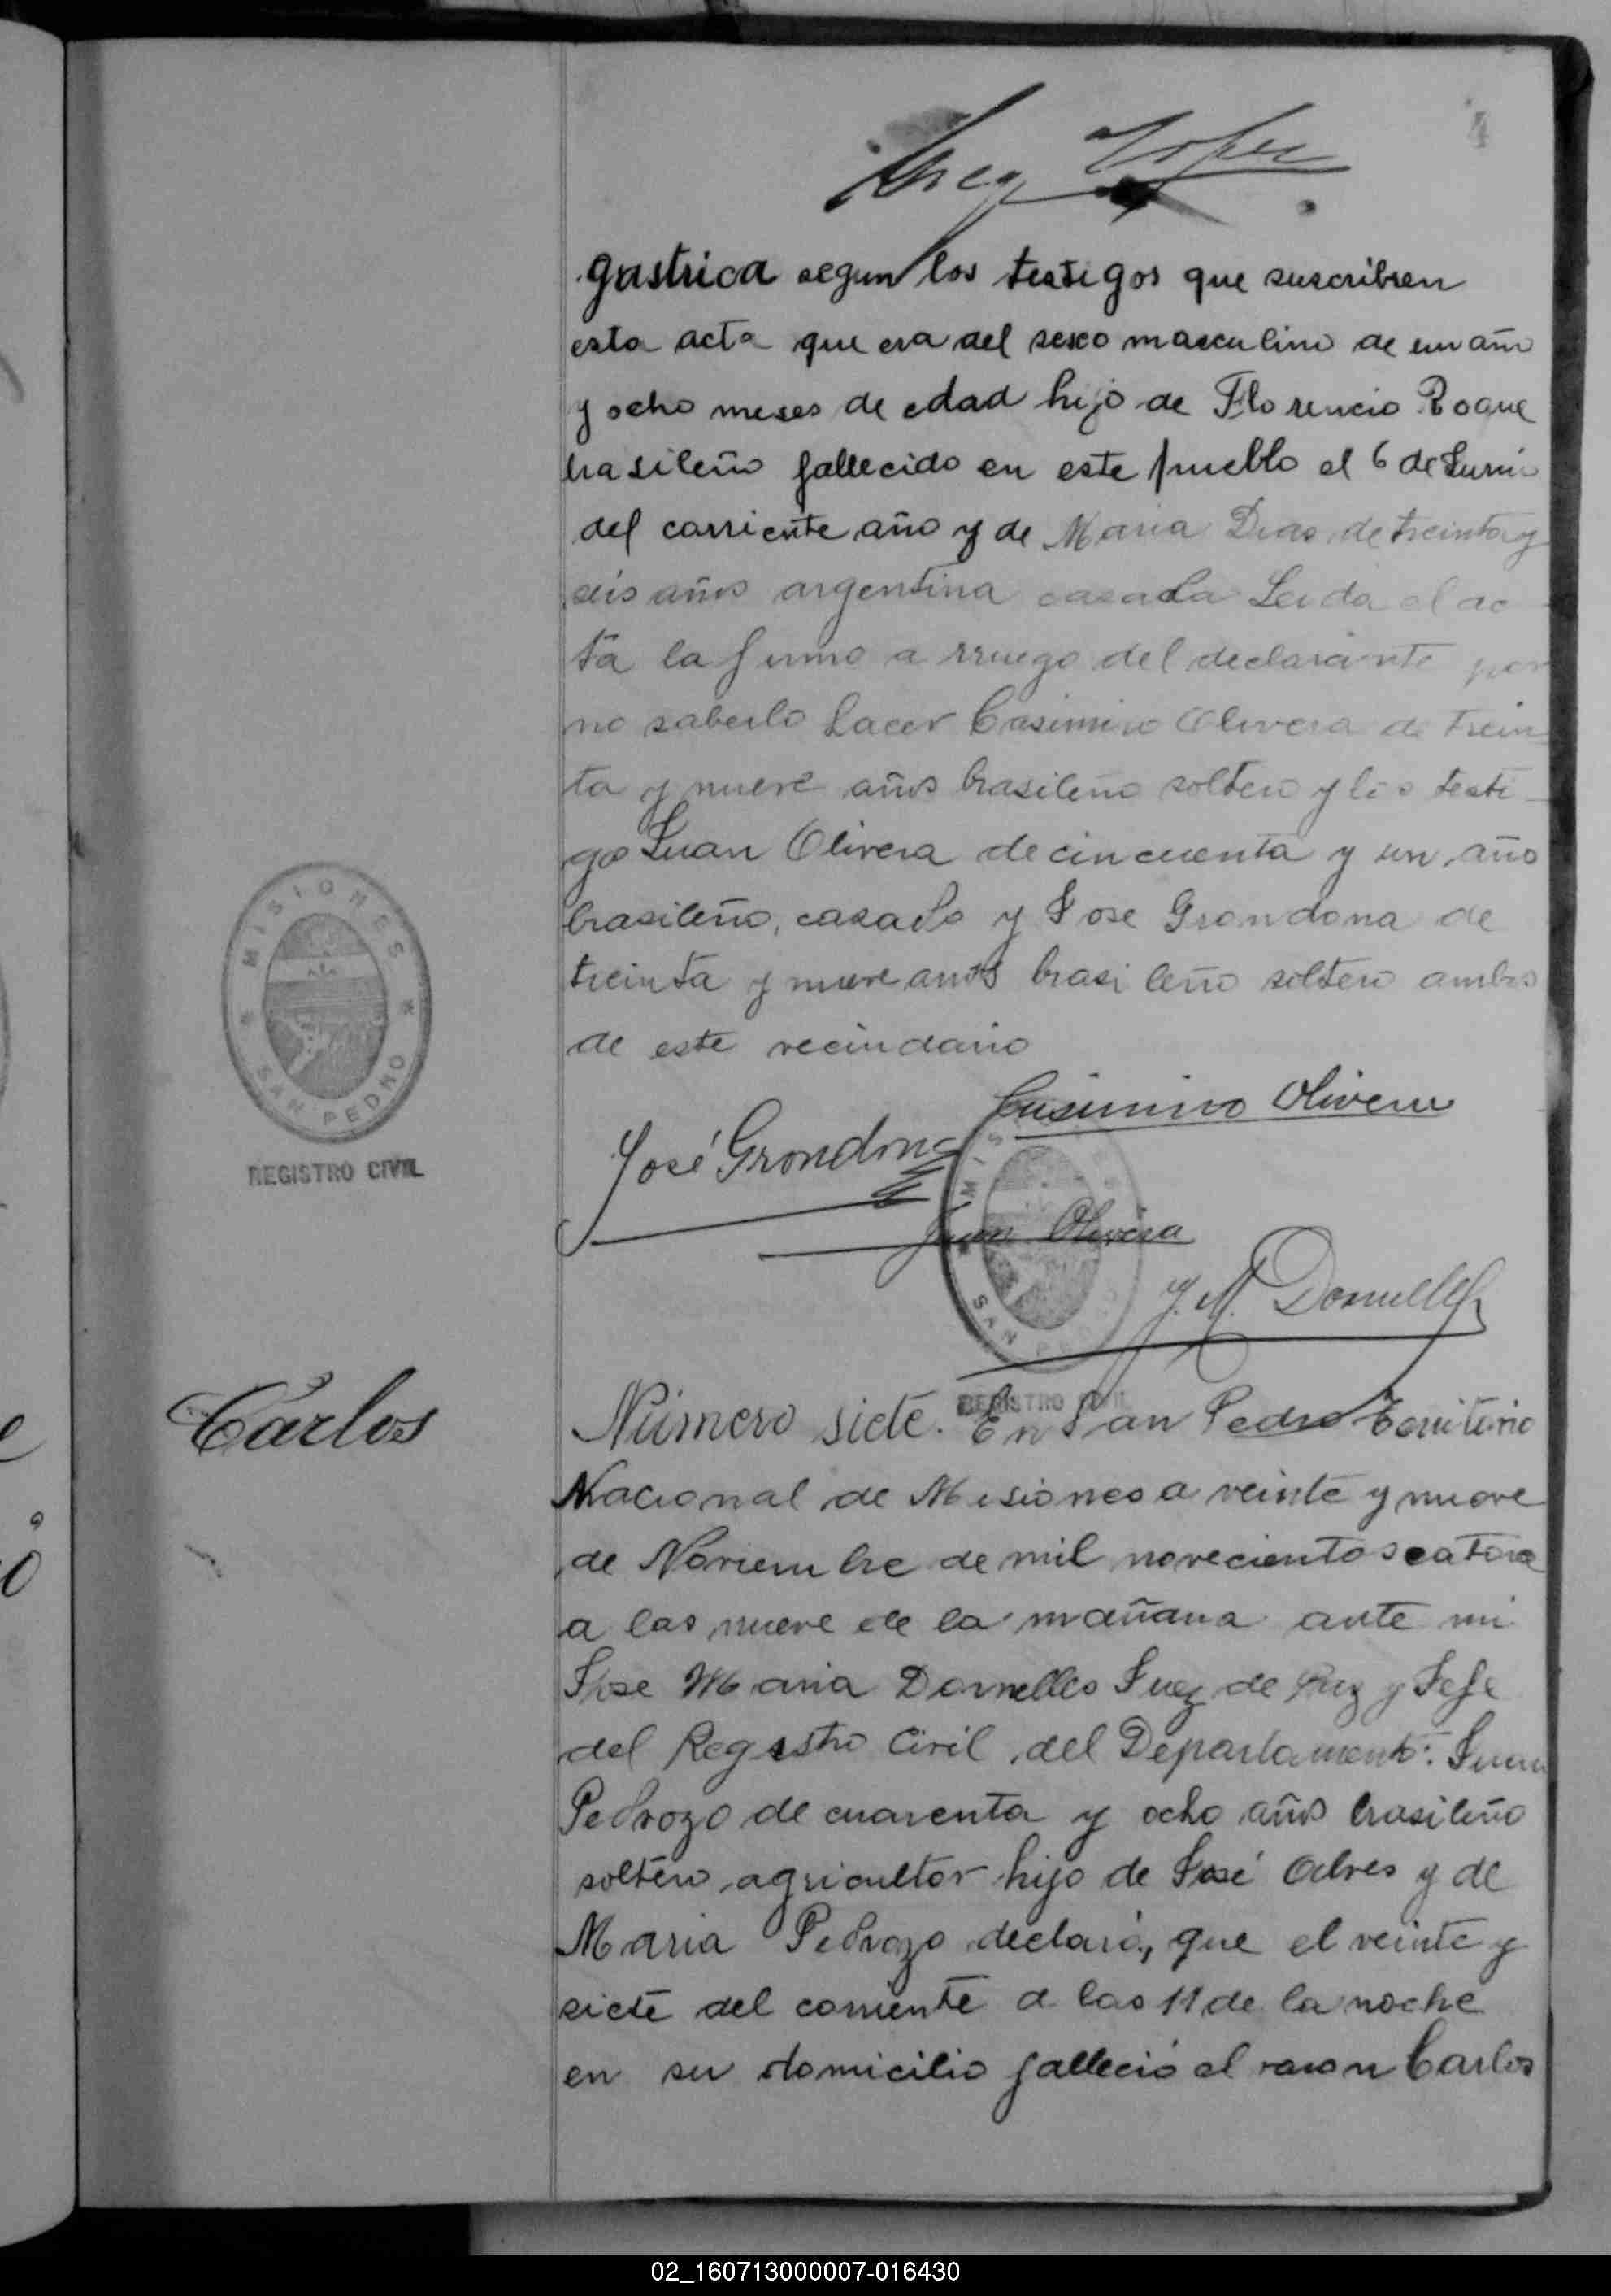 4
gastrica segun los testigos que suscriben
esta acta que era del sexo masculino de un año
y ocho meses de edad hijo de Florencio Roque
brasileño fallecido en este pueblo el 6 de Junio
del corriente año y de Maria Dias de treinta y
seis años argentina casada Leida el ac
ta la firmo a rruego del declarante por
no saberlo hacer Casimiro Olivera de trein
ta y nueve años brasileño soltero y los testi-
gos Juan Olivera de cincuenta y un año
brasileño, casado y Jose Grondona de
treinta y nueve años brasileño soltero ambos
de este vecindario
Casimiro Olivera
José Grondona
Juan Olivera
J. M. Dornelles
MISIONES
SAN PEDRO
REGISTRO CIVIL
MIS
SAN P
REGISTRO CIVIL
Carlos
Número siete. En San Pedro Territorio
Nacional de Misiones a veinte y nueve
de Noviembre de mil novecientos catorce
a las nueve de la mañana ante mi
Jose Maria Dornelles Juez de Paz y Jefe
del Registro Civil del Departamento: Juan
Pedrozo de cuarenta y ocho años brasileño
soltero agricultor hijo de José Alves y de
Maria Pedrozo declaró, que el veinte y
siete del corriente a las 11 de la noche
en su domicilio falleció el varon Carlos
02_160713000007-016430